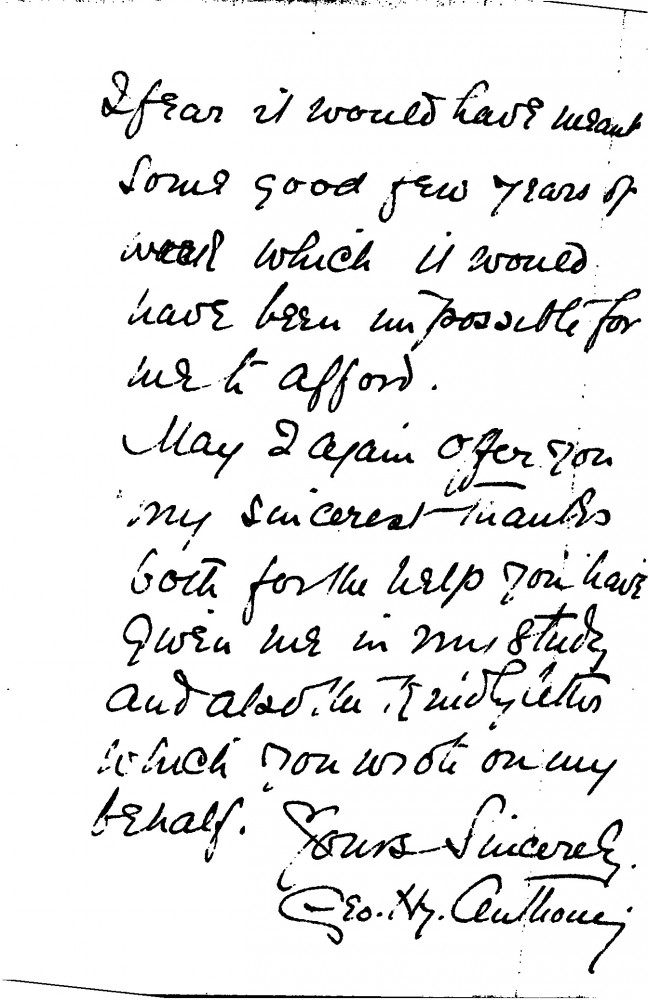 I fear it would have meant
some good few years of
work which it would
have been impossible for
me to afford.
May I again offer you
my sincerest thanks
both for the help you have
given me in my study
and also the kindly letter
which you wrote on my
behalf.
Yours Sincerely.
Geo. Hy. Anthony